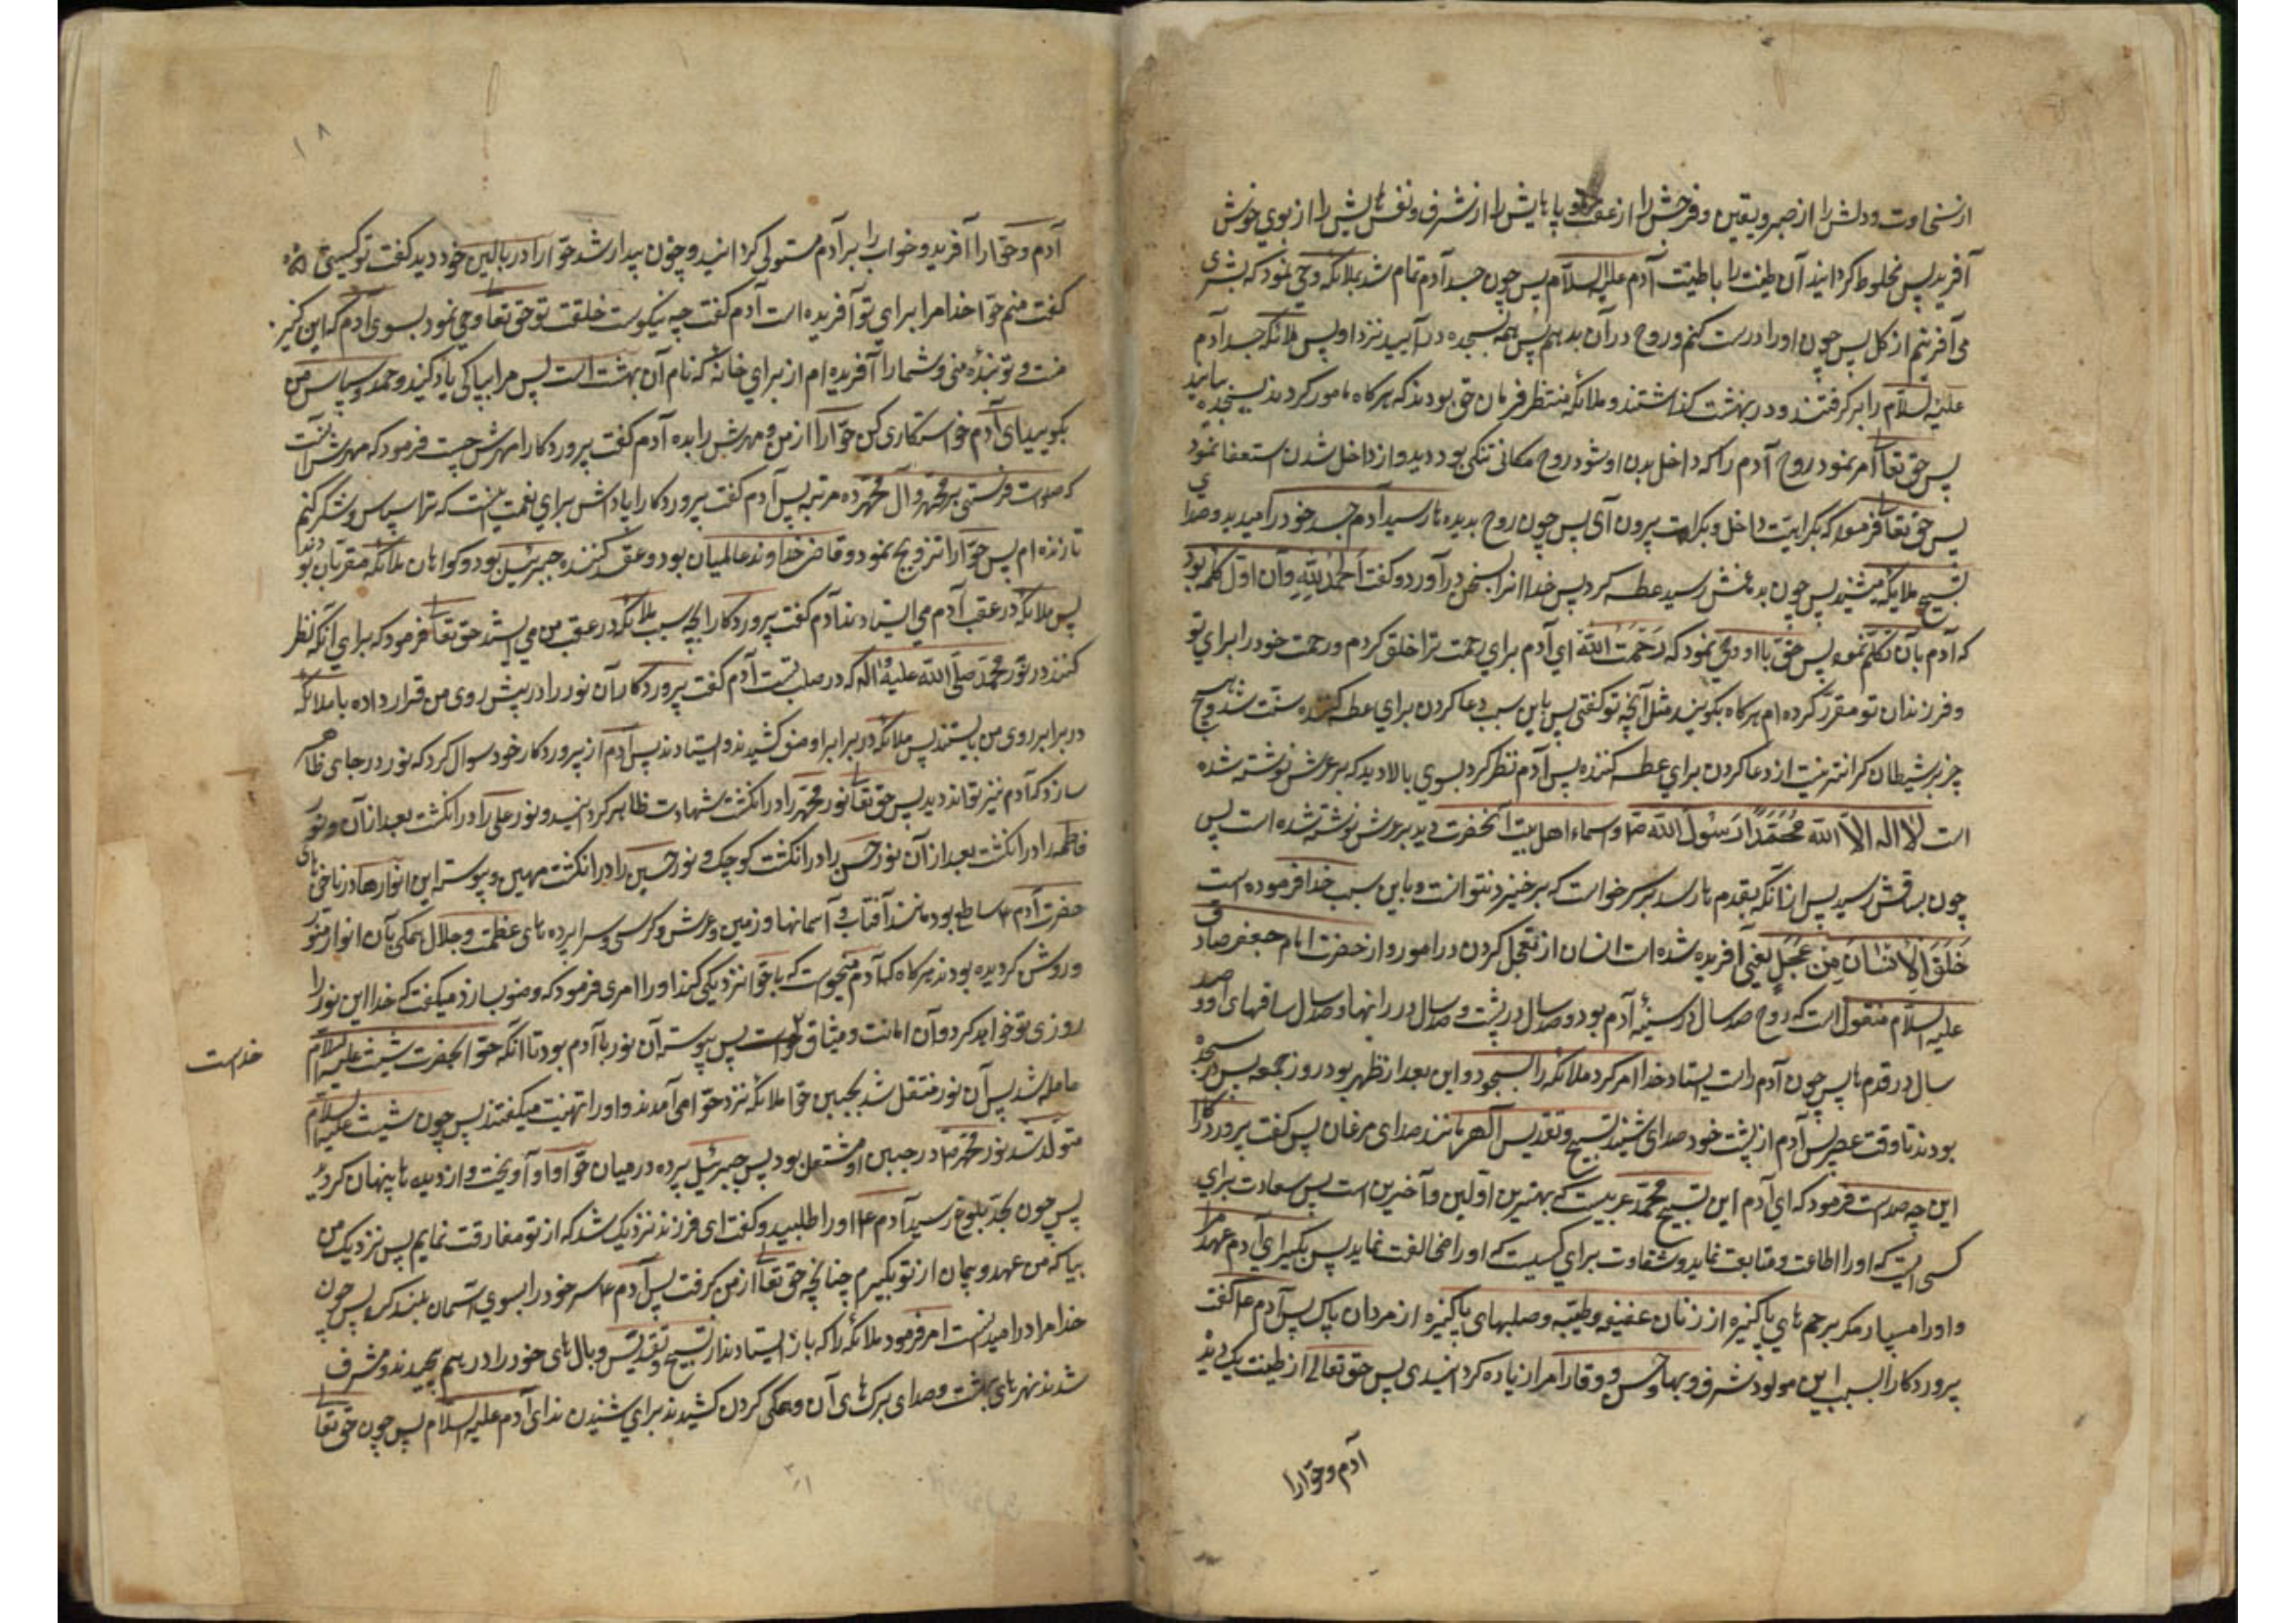 از سخاوت و دلش را از صبر و یقین و فرجش را از عفت و پاهایش را از شرف و نفسهایش را از بوی خوش
آفرید پس مخلوط کردانید آن طینت را با طینت آدم علیه السلام پس چون جسد آدم تمام شد بملائکه وحی نمود که بشری
می آفرینم از کل پس چون او را درست کنم و روح در آن بدهم پس همه بسجده در آیید نزد او پس ملائکه جسد آدم
علیه السلام را بر کرفتند و در بهشت کذاشتند و ملائکه منتظر فرمان حق بودند که هر کاه مامور کردند بسجده بیایند
پس حق تعالی امر نمود روح آدم را که داخل بدن او شود روح مکانی تنکی بود دید و از داخل شدن استعفا نمود
پس حق تعالی فرمود که بکراهیت داخل و بکراهت بیرون آی پس چون روح بدیده ها رسید آدم جسد خود را میدید و صدای
تسبیح ملایکه میشنید پس چون بدماغش رسید عطسه کرد پس خدا او را بسخن درآورد و کفت الحمد لله و آن اول کلمه بود
که آدم بآن تکلم نمود پس حق با او وحی نمود که رحمت الله ای آدم برای رحمت ترا خلق کردم و رحمت خود را برای تو
و فرزندان تو مقرر کرده ام هر کاه بکویند مثل آنچه تو کفتی پس باین سبب دعا کردن برای عطسه کننده سنت شد و هیچ
چیز بر شیطان کرانتر نیست از دعا کردن برای عطسه کننده پس آدم نظر کرد بسوی بالا دید که بر عرش نوشته شده
است لا اله الا الله محمدا رسول الله و اسماء اهل بیت آنحضرت دید بر عرش نوشته شده است پس
چون بساقش رسید پیش از آنکه بقدم ها رسد هر کس خواست که برخیزد نتوانست و باین سبب خدا فرموده است
خلق الانسان من عجل یعنی آفریده شده است انسان از تعجیل کردن در امور و از حضرت امام جعفر صادق
علیه السلام منقول است که روح صد سال در سینه آدم بود و صد سال در پشت و صد سال در رانها و صد سال ساقهای او و صد
سال در قدم ها پس چون آدم راست ایستاد خدا امر کرد ملائکه را بسجود و این بعد از ظهر بود روز جمعه پس در سجده
بودند تا وقت عصر پس آدم از پشت خود صدای شنید تسبیح و تقدیس الهی مانند صدای مرغان پس کفت پروردکارا
این چه صداست فرمود که ای آدم این تسبیح محمد عربیست که بهترین اولین و آخرین است پس سعادت برای
کسی است که او را اطاعت و متابعت نماید و شقاوت برای کسیست که او را مخالفت نماید پس بکیر ای آدم عهد مرا
و او را مسپار مکر برحم های پاکیزه از زنان عفیفه و طیبه و صلبهای پاکیزه از مردان پاک پس آدم ع کفت
پروردکارا بسبب این مولود شرف و بها و حسن و وقار مرا زیاده کردانیدی پس حق تعالی از طینت یک دید
آدم و حوا را
۱۸
آدم و حوا را آفرید و خواب را بر آدم مستولی کردانید و چون بیدار شد حوا را در بالین خود دید کفت تو کیستی
کفت منم حوا خدا مرا برای تو آفریده است آدم کفت چه نیکوست خلقت تو حق تعالی وحی نمود بسوی آدم که این کنیز
منست و تو بنده منی و شما را آفریده ام از برای خانه که نام آن بهشت است پس مرا بپاکی یاد کنید و حمد و سپاس من
بکویید ای آدم خواستکاری کن حوا را از من و مهرش را بده آدم کفت پروردکارا مهرش چیست فرمود که مهرش آنست
که صلوات فرستی بر محمد و آل محمد ده مرتبه پس آدم کفت پروردکارا پاداش برای نعمت اینست که ترا سپاس و شکر کنم
تا زنده ام پس حوا را تزویج نمود و قاضی خداوند عالمیان بود و عقد کننده جبرئیل بود و کواهان ملائکه مقربان بودند
پس ملائکه در عقب آدم می ایستادند آدم کفت پروردکارا بچه سبب ملائکه در عقب من می ایستند حق تعالی فرمود که برای آنکه نظر
کنند در نور محمد صلی الله علیه و اله که در صلب تست آدم کفت پروردکارا آن نور را در پیش روی من قرار داده تا ملائکه
در برابر روی من بایستند پس ملائکه در برابر او صف کشیدند و ایستادند پس آدم از پروردکار خود سوال کرد که نور در جای ظاهر
سازد که آدم نیز تواند دید پس حق تعالی نور محمد را در انکشت شهادت ظاهر کردانید و نور علی را در انکشت بعد از آن و نور
فاطمه را در انکشت بعد از آن نور حسن را در انکشت کوچک و نور حسین را در انکشت مهین و پیوسته این انوارها در ناخن های
حضرت آدم ع ساطع بود مانند آفتاب و آسمانها و زمین و عرش و کرسی و سراپرده های عظمت و جلال همکی بآن انوار منور
و روشن کردیده بودند هر کاه که آدم میخواست که با حوا نزدیکی کند او را امر می فرمود که وضو بسازد میکفت که خدا این نور را
روزی تو خواهد کرد و آن امانت و میثاق خداست پس پیوسته آن نور با آدم بود تا آنکه حوا بحضرت شیث علیه السلام
خداست
حامله شد پس آن نور منتقل شد بجبین حوا ملائکه نزد حوا می آمدند و او را تهنیت میکفتند پس چون شیث علیه السلام
متولد شد نور محمد در جبین او مشتعل بود پس جبرئیل پرده در میان حوا و او آویخت و از دیده ها پنهان کرد
پس چون بحد بلوغ رسید آدم ع او را طلبید و کفت ای فرزند نزدیک شد که از تو مفارقت نمایم پس نزدیک من
بیا که من عهد و پیمان از تو بکیرم چنانچه حق تعالی از من کرفت پس آدم ع سر خود را بسوی آسمان بلند کرد پس چون
خدا مراد را میدانست امر فرمود ملائکه را که باز ایستادند از تسبیح و تقدیس و بال های خود را در هم پیچیدند و مشرف
شدند نهرهای بهشت و صدای برک های آن و همکی کردن کشیدند برای شنیدن ندای آدم علیه السلام پس چون حق تعالی